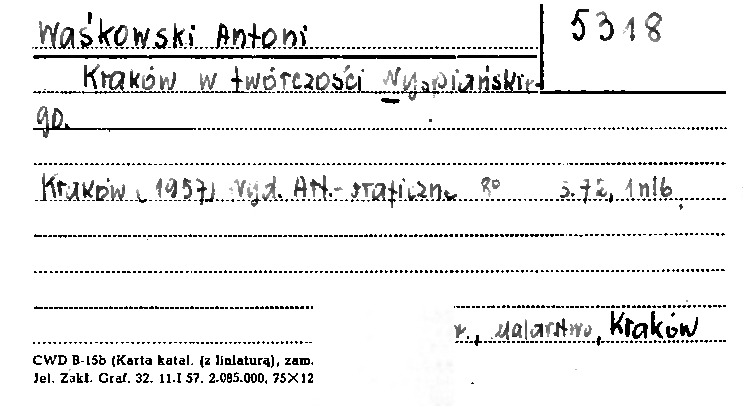 Waśkowski Antoni
5318
Kraków w twórczości Wyspiańskie-
go.
Kraków [1957] Wyd. Art.-Graficzne 8° s. 72, 1 nlb.
malarstwo, Kraków
CWD B-15b (Karta katal. (z liniaturą), zam.
Jel. Zakł. Graf. 32. 11.I 57. 2.085.000, 75×12